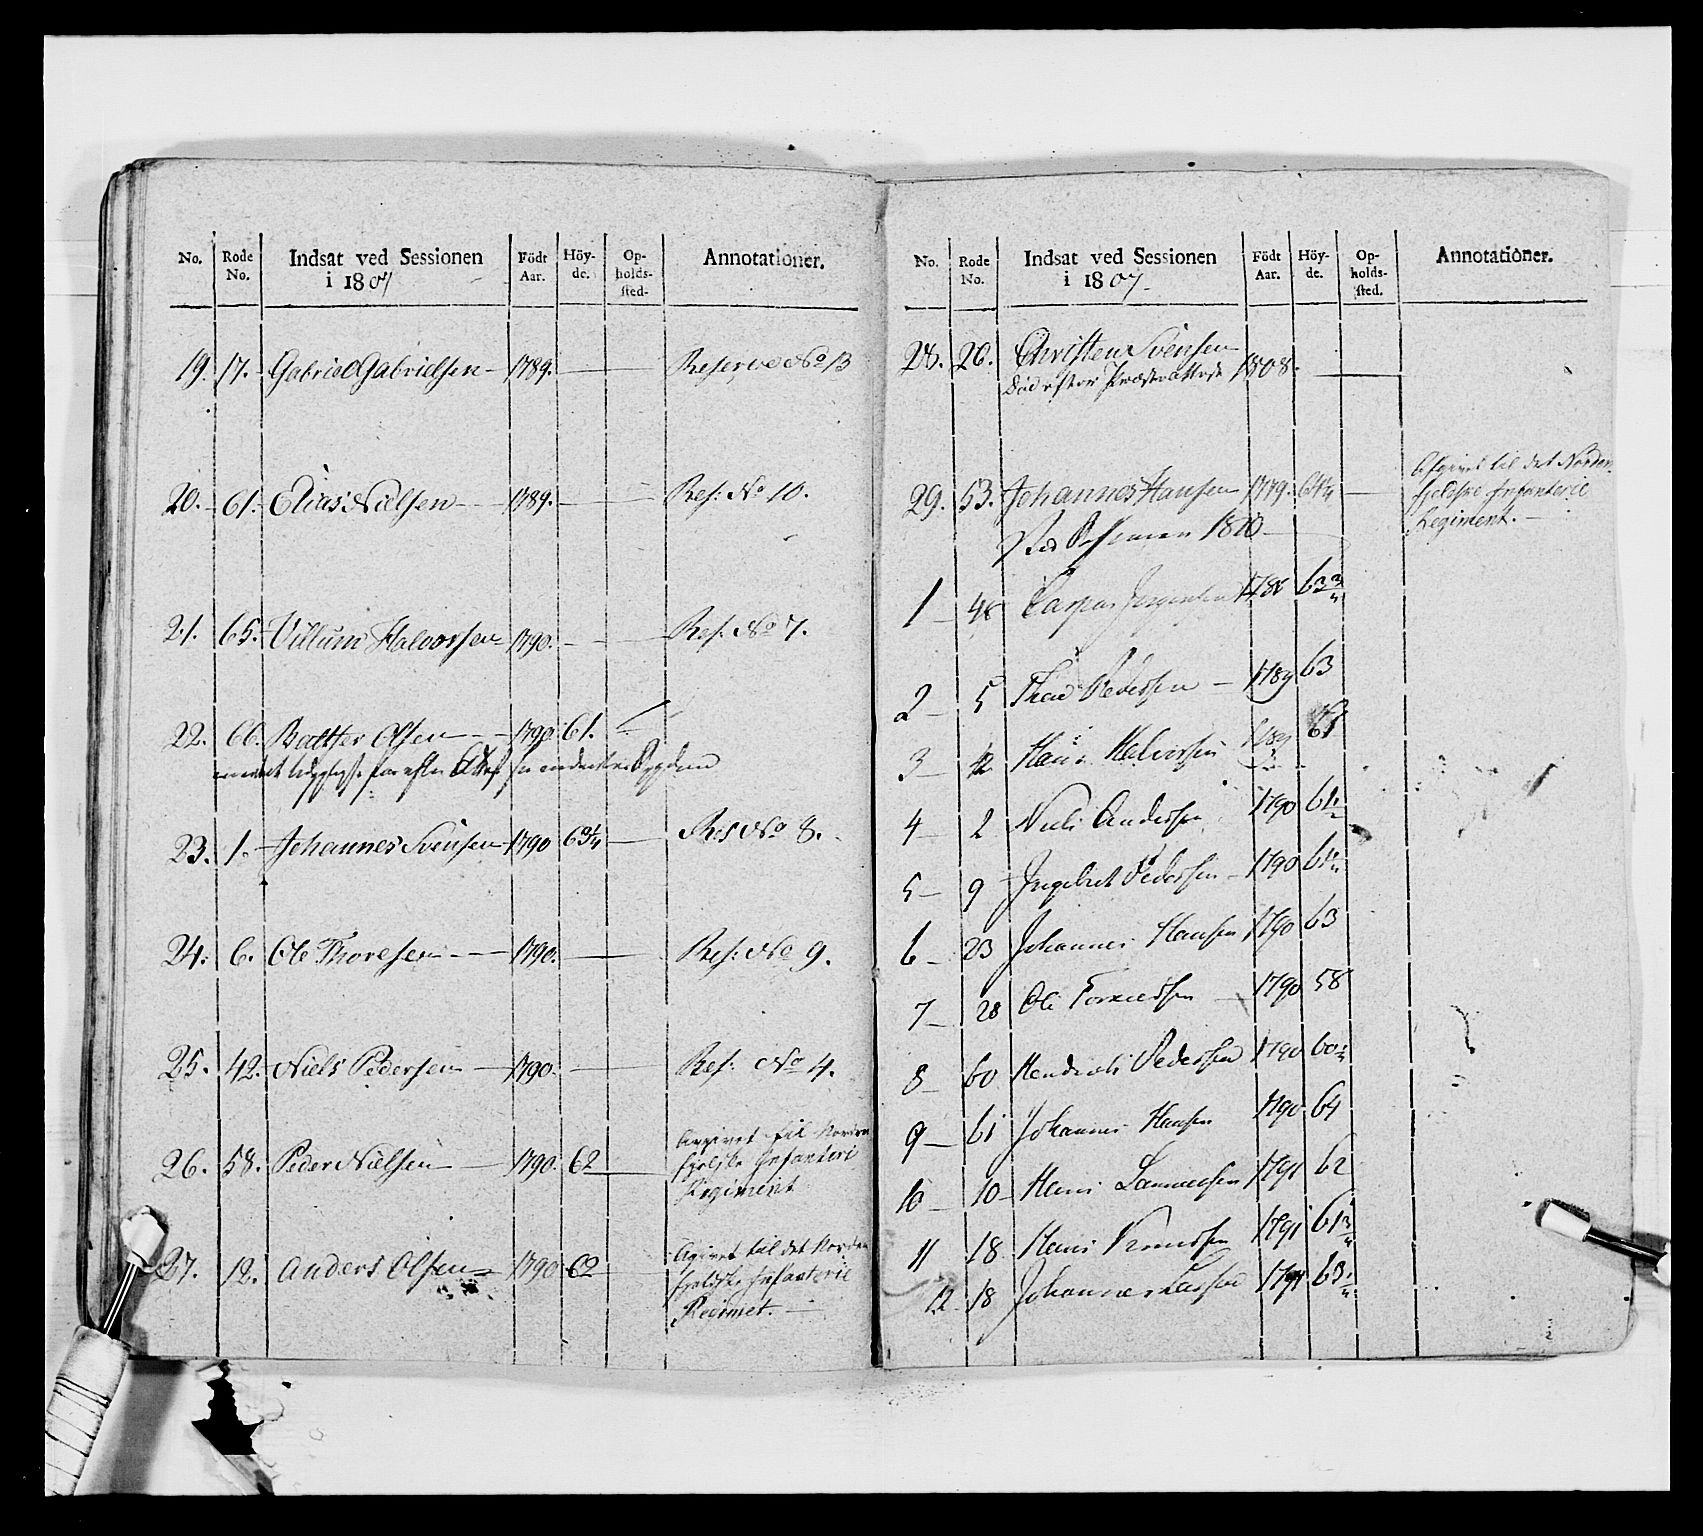 No. Rode No. Indsat ved Sessionen i 1807 Födt Aar. Höy-de. Op-holds-sted- Annotationer.
19. 17. Gabriel Gabrielsen 1789. Reserve No 13
20. 61. Elias Nielsen 1789. Res: No 10.
21. 65. Villum Halvorsen 1790. Res: No 7.
22. 66. Balther Olsen 1790 61.
23. 1. Johannes Svensen 1790 63¼ Res No 8.
24. 6. Ole Thoresen 1790. Res: No 9.
25. 42. Niels Pedersen 1790. Res: No 4.
26. 58. Peder Nielsen 1790. 62 Avgivet til Norden
fjeldske Infanteri
Regiment
27. 12. Anders Olsen 1790 62 Agivet til det Norden
fjeldske Infanterie
Regimet.
No. Rode No. Indsat ved Sessionen i 1807 Födt Aar. Höy-de. Op-holds-sted. Annotationer.
28. 26. Christen Svensen
Död efter Præste Attest 1808.
29. 53. Johannes Hansen 1779. Afgivet til det Norden
fjeldske Infanterie
Regiment.
Ved Sessionen 1810
1 Casper Jörgensen 63¾
2 5 Pedersen 1789 63
3 Hans Halvorsen 1789
4 2 Niels Andersen 1790
5 9 Ingebret Pedersen 1790
6 23 Johannes Hansen 1790 63
7 28 Ole 1790 58
8 60 Hendrich Pedersen 1790
9 61 Johannes Hansen 1790 64
10 10 Hans 1791 62
11 18 Hans 1791
12 18 Johannes Larsen 1791